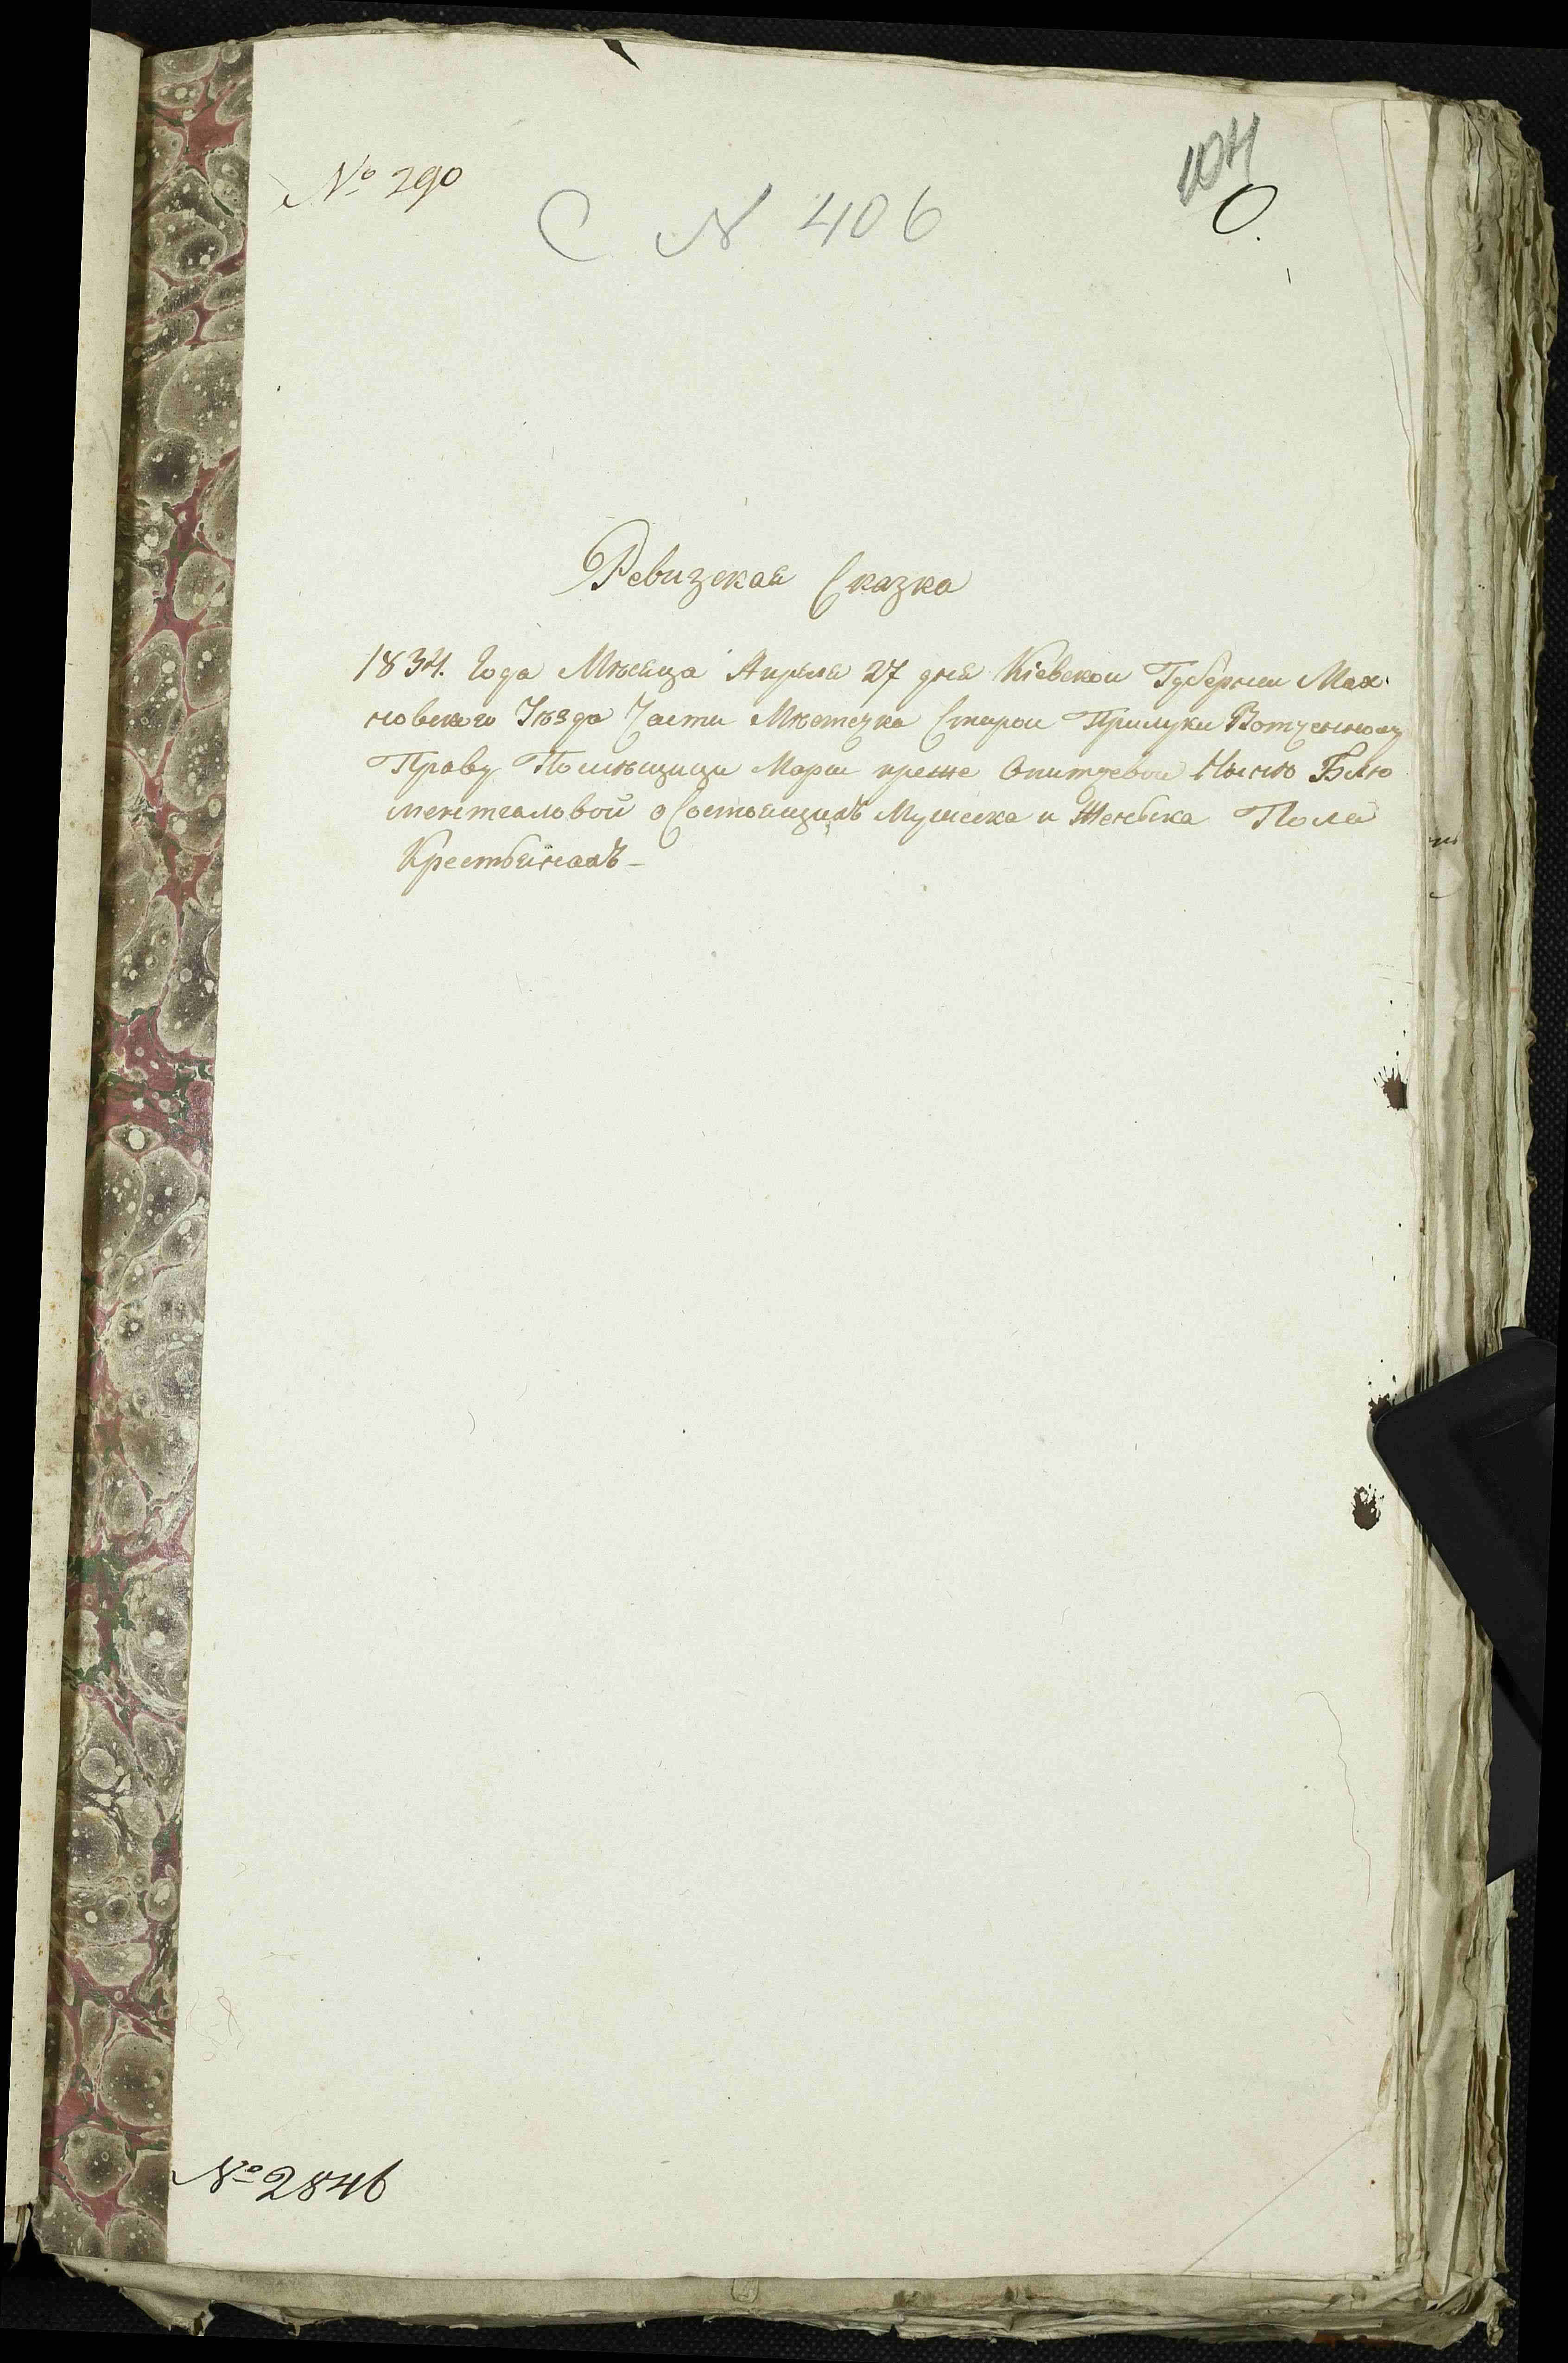 № 290
С N 406
Ревизская Сказка
1834. Года Мѣсяца Апрѣля 27 дня Кіевской Губернии Мах
новского Уѣзда Части Мѣстечка Старой Прилуки Вотченному
Праву Помѣщици Марии преже Опитцевой Нынѣ Блю
ментталовой о Состоящихъ Мужеска и Женьска Пола
Крестьянахъ–
№ 2846